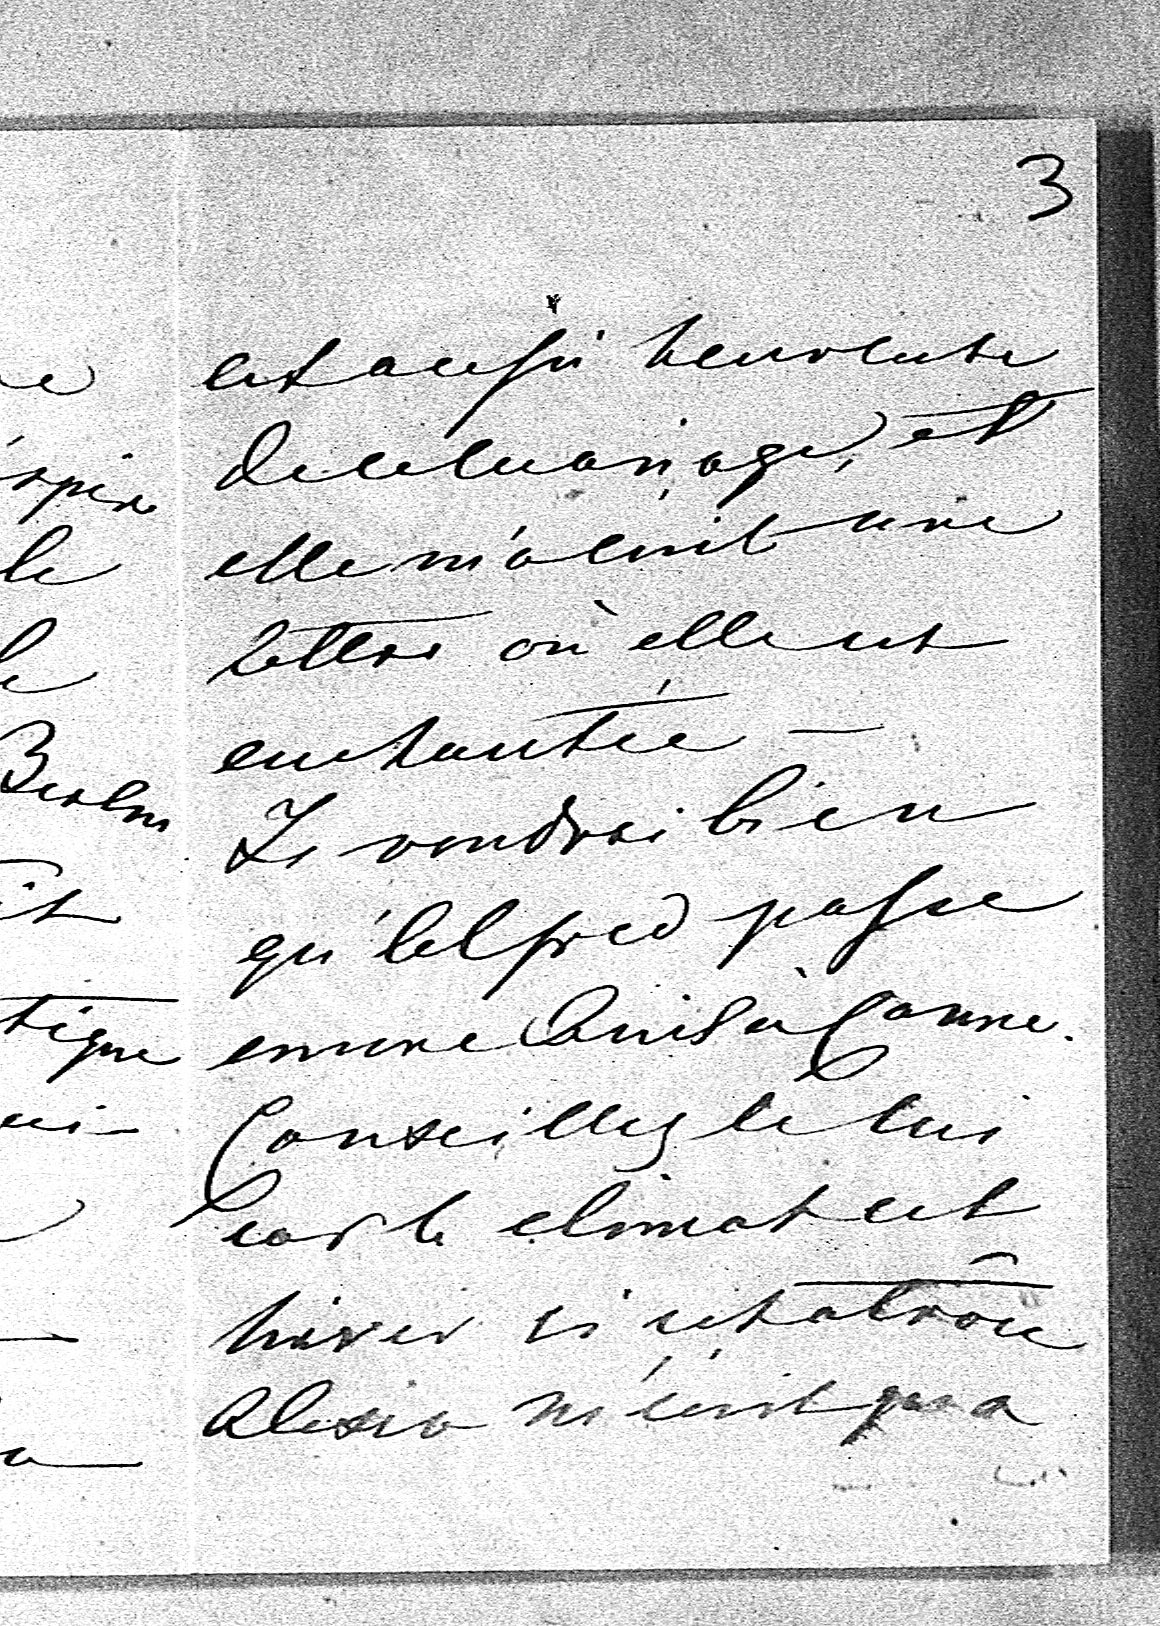 3
est aussi heureuse
de ce mariage, et
elle m'a écrit une
lettre où elle est
enchantée —
Je voudrai bien
qu'Alfred passe
encore à Canne.
Conseillez le lui
car le climat est
hiver ici est atroce
Alexis m'écrit
le
Berlin
tique